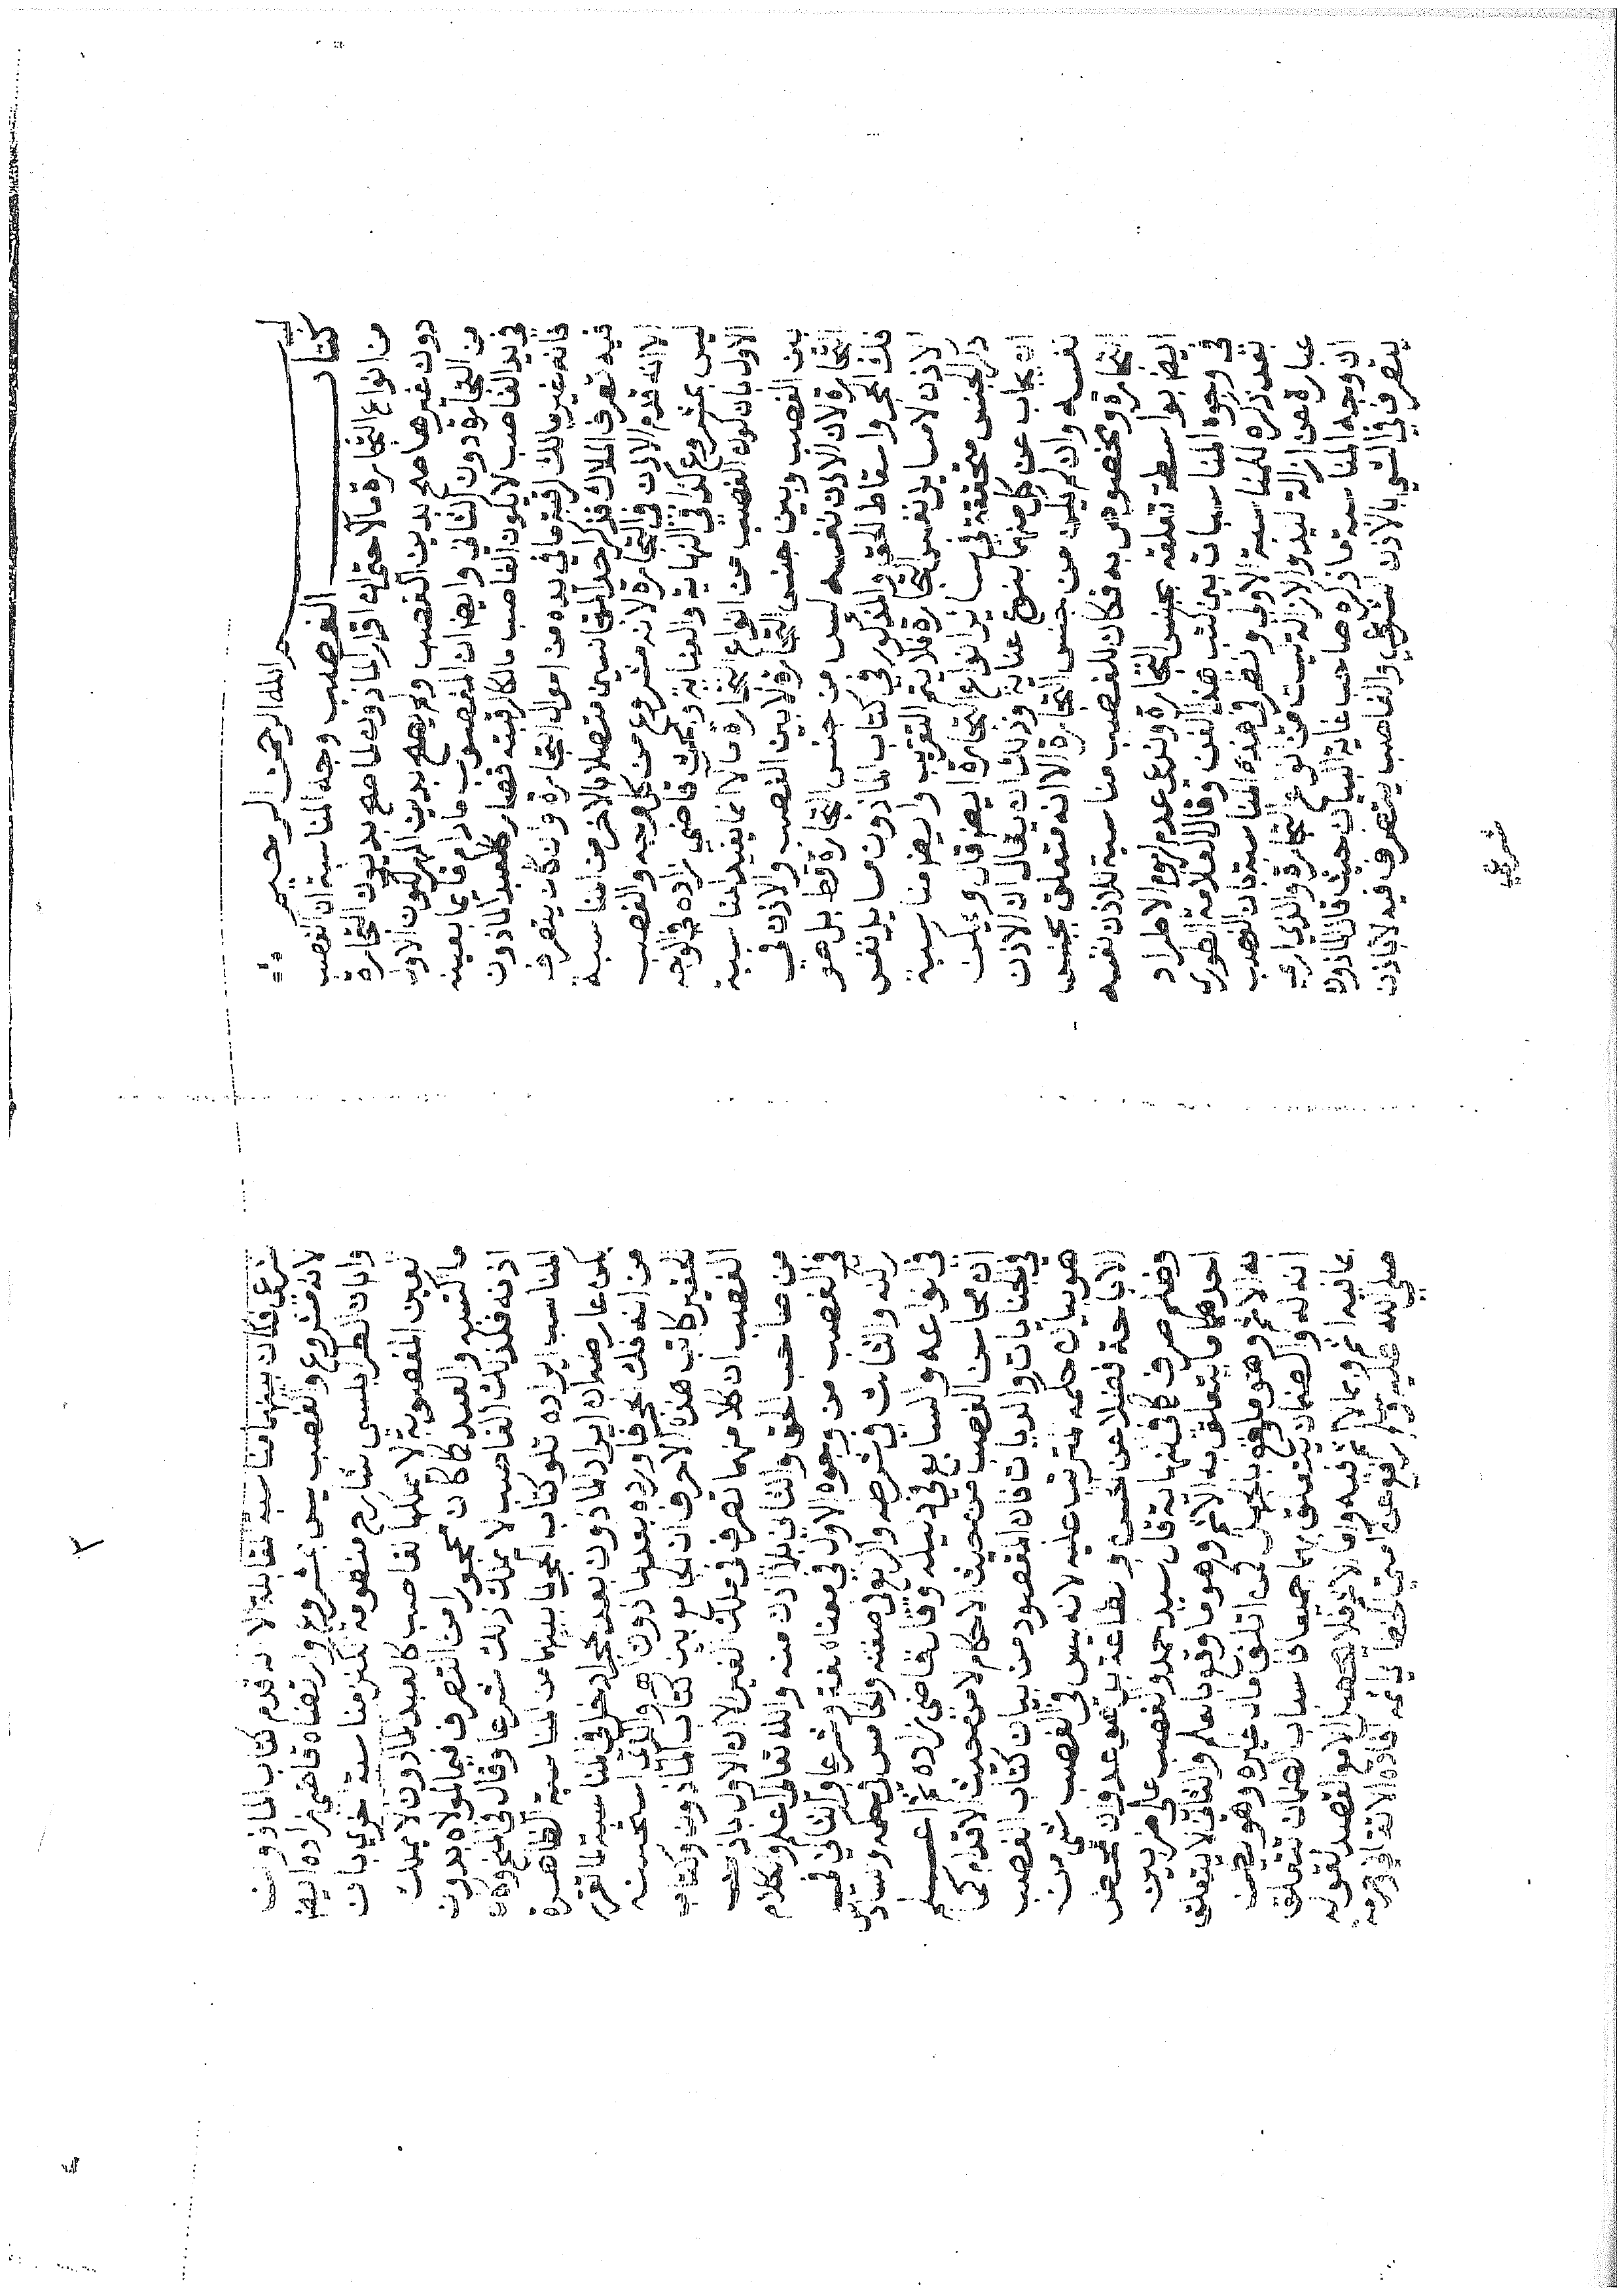 بسم الله الرحمن الرحيم
كتاب الغصب وجه المناسبة ان الغصب
من انواع التجارة مآلا حتى ان اقرار الماذون لما صح بديون التجارة
دون غيرها صح بدين الغصب ولم يصح بدين المهر لكون الاول
من التجارة دون الثاني وايضا ان المغصوب ما دام قائما بعينه
في يد الغاصب لا يكون الغاصب مالكا لرقبته فصار كالعبد الماذون
فانه غير مالك لرقبة ما في يده من اموال التجارة وان كان يتصرف
فيه تصرف الملاك فذكر احد المتجانسين متصلا بالاخر من المناسبة
الا انه قدم الاذن في التجارة لانه مشروع من كل وجه والغصب
ليس بمشروع كذا في النهاية والعناية وبحث قاضي زاده في الوجه
الاول بان كون الغصب من انواع التجارة مآلا انما يفيد المناسبة
بين الغصب وبين جنس التجارة لا بين الغصب والاذن في
التجارة لان الاذن نفسه ليس من جنس التجارة قط بل هو
فك الحجر واسقاط الحق والمذكور في كتاب الماذون مسايل نفس
الاذن لا مسايل نفس التجارة فلا يتم التقريب وايضا مناسبة
ذكر الجنس متحققة في ساير انواع التجارة ايضا قال ويمكن
ان يجاب عن كل منهما بنوع عناية وذلك ان يقال ان الاذن
نفسه وان لم يكن من جنس التجارة الا انه متعلق بجنس
التجارة ومخصوص به فكان للغصب مناسبة للاذن نفسه
ايضا بواسطة تعلقه بجنس التجارة وندعي عدم لزوم الاطراد
في وجوه المناسبات بين كتب هذا الفن وقال العلامة الطوري
بعد ذكره للمناسبة الاولى ونظر في هذه المناسبة بان الغصب
عبارة عن ازالة اليد والازالة ليست من انواع التجارة والذي اري
ان وجه المناسبة ما ذكره صاحب غاية البيان حيث قال الماذون
يتصرف في الشي بالاذن الشرعي والغاصب يتصرف فيه لا باذن
شرعي
شرعي فكان بينهما مناسبة المقابلة الا انه قدم كتاب الماذون
لانه مشروع والغصب ليس بمشروع وارتضاه قاضي زاده ايضا
وابان الطرابلسي شارح منظومة الكنز مناسبة اخرى بان
تعين المغصوبة لا يملكها الغاصب كالعبد الماذون لا يملك
ما اكتسبه والعبد كما كان محجورا من التصرف فيما لمولاه بدون
اذنه فكذلك الغاصب لا يملك ذلك شرعا وقال في المنح وكان
المناسب ايراده تلو كتاب الحجر لما بينهما من المناسبة الظاهرة
لكن عارضه ان ايراد الماذون بعد الحجر ادخل في المناسبة لما تقرر
من انه فك الحجر فاورده بعد الماذون هو الذي استحسنه
الحقير كاتب هذه الاحرف ان الجامع بين كتاب الماذون وكتاب
الغصب ان كلا منهما تصرف في ملك الغير الا ان الاول باذن
من صاحب الحق والثاني بلا اذن منه والله تعالى اعلم والكلام
في الغصب من وجوه الاول في معناه لغة وشرعا والثاني في
ركنه والثالث في شرطه والرابع في صفته والخامس في حكمه والسادس
في انواعه والسابع في دليله وقال قاضي زاده ثم اعلم
ان محاسن الغصب من حيث الاحكام لا من حيث الاقدام كما
في الجنايات والديات فان المقصود من بيان كتاب الغصب
هو بيان حكمه المترتب عليه لانه ليس في الغصب شي من
الاباحة فضلا عن الحسن والطاعة بل هو عدوان محض
وظلم صرف كما في النهاية قال سيد احمد والغصب على ضربين
احدهما ما يتعلق به الاثم وهو ما وقع بالعلم والثاني لا يتعلق
به الاثم وهو ما وقع بالجهل كمن اتلف مال غيره وهو يظن
انه له والضمان يتعلق بهما جميعا لان اسباب الضمان تتعلق
بما فيه اثم وبما لا اثم فيه واما الاثم فلا يحصل الا مع القصد لقوله
صلى الله عليه وسلم رفع عن امتي الخطا